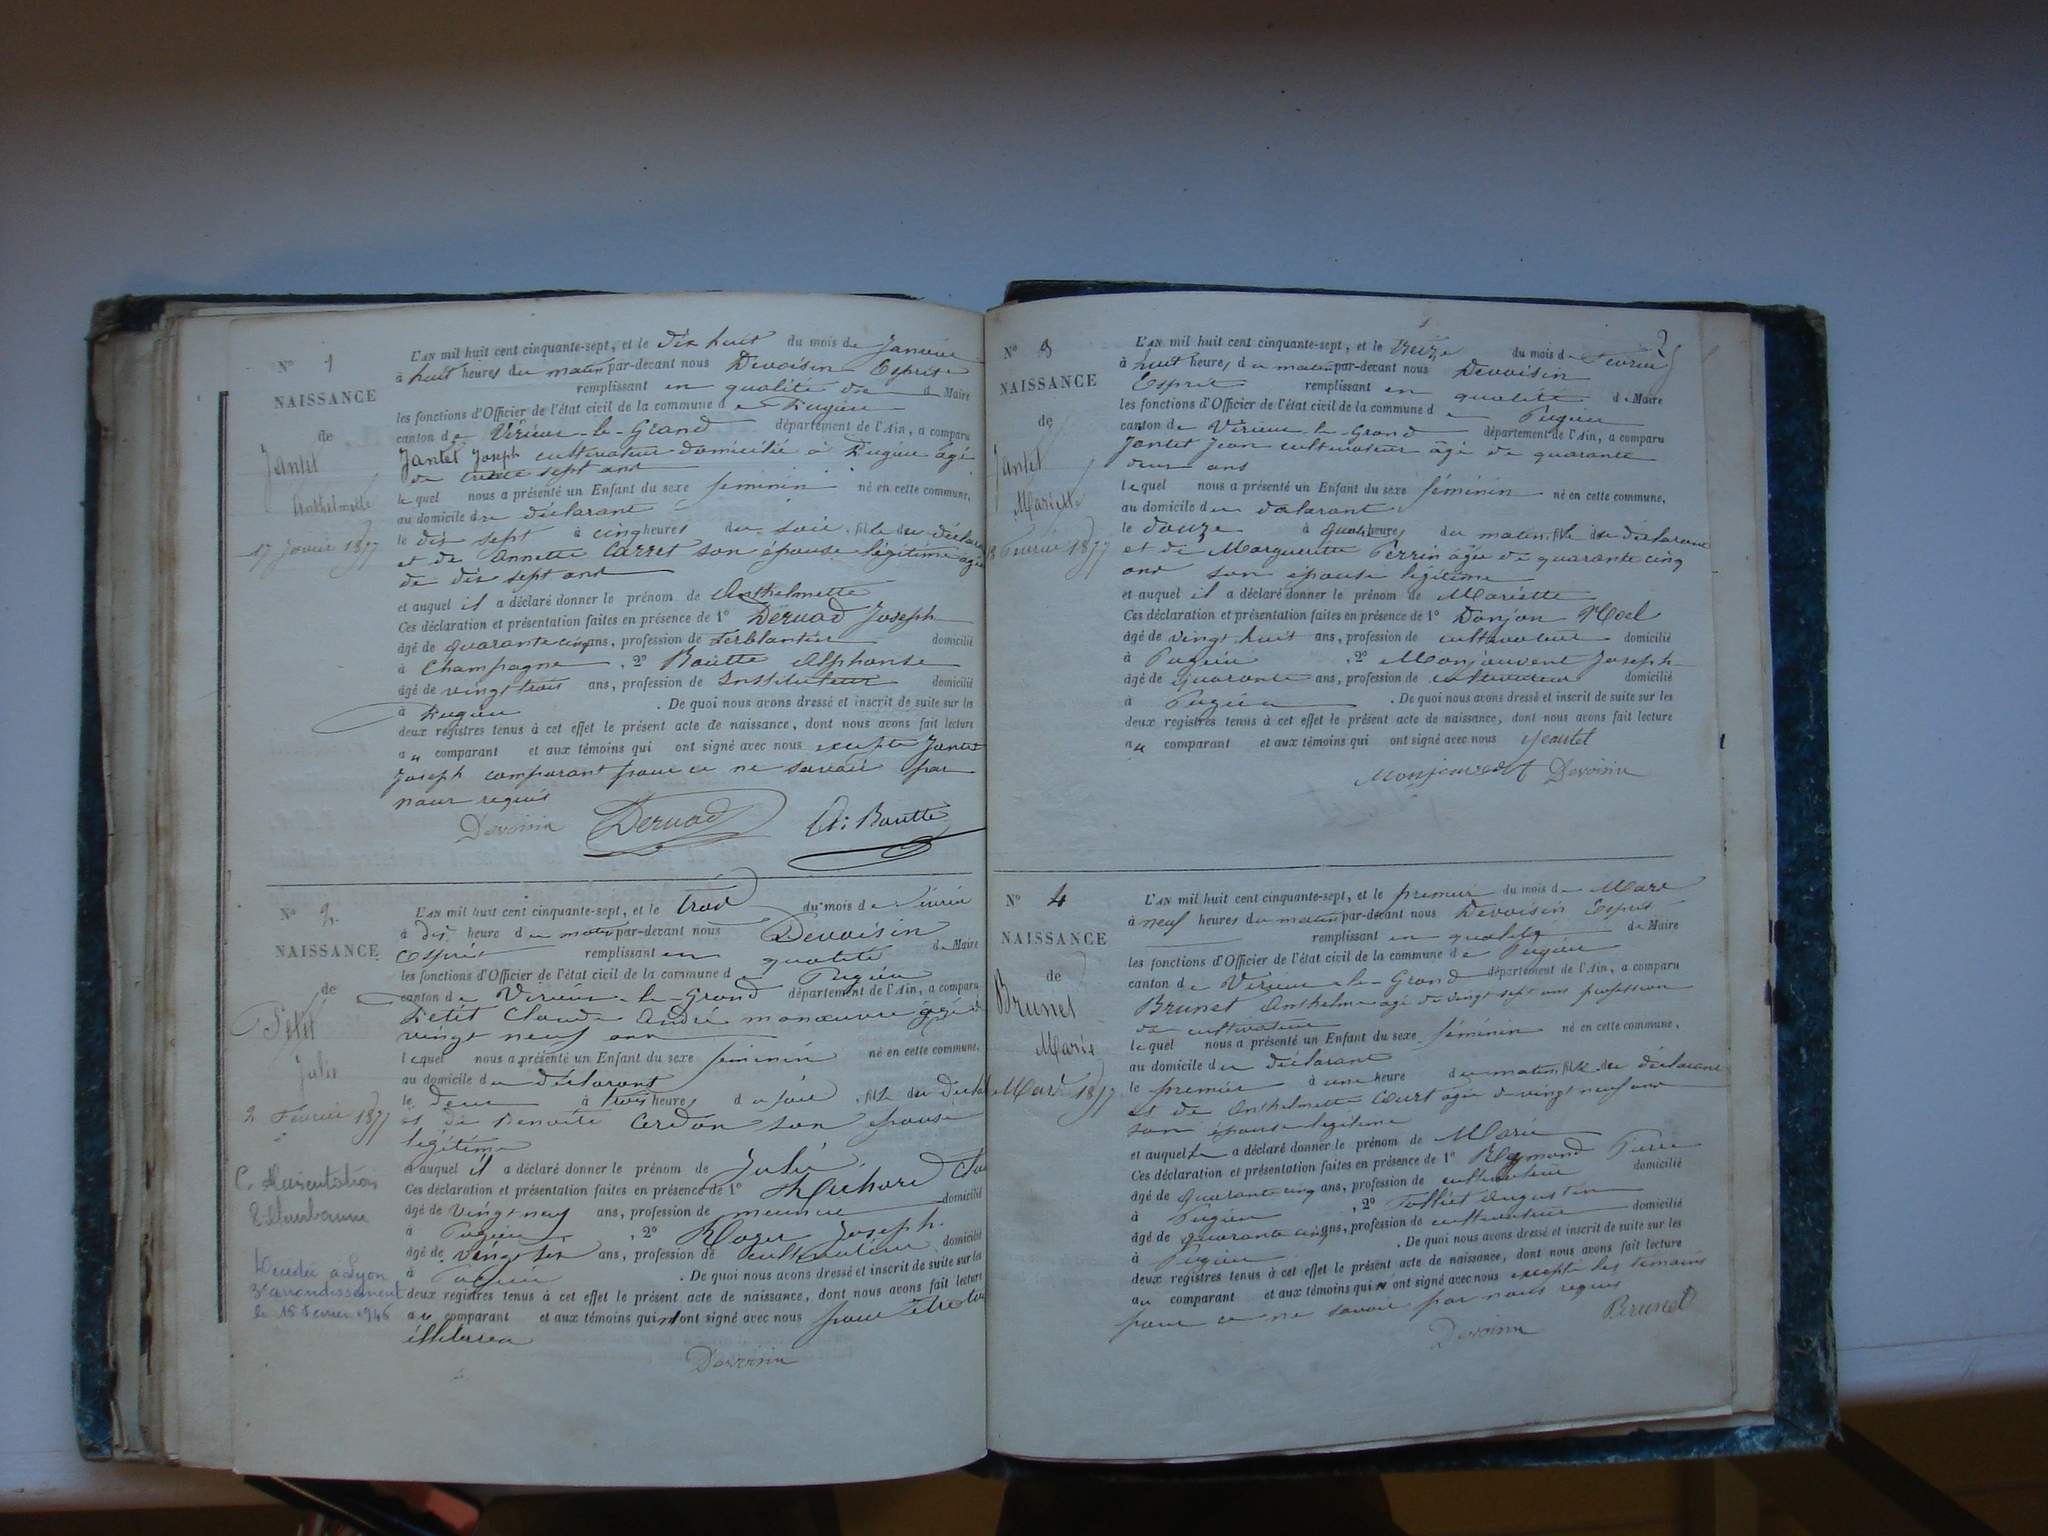 N° 1
NAISSANCE
de
Jantet
Anthelmette
17 Janvier 1857
L'AN mil huit cent cinquante-sept, et le dix huit du mois de Janvier
à huit heures du matin par-devant nous Devoisin Esprit
remplissant en qualité de de Maire
les fonctions d'Officier de l'état civil de la commune de Pugieu
canton de Virieu-le-Grand département de l'Ain, a comparu
Jantet Joseph cultivateur domicilié à Pugieu agé
de trente sept ans
lequel nous a présenté un Enfant du sexe féminin né en cette commune,
au domicile du déclarant
le dix sept à cinq heures du soir, fille du déclarant
et de Annette Carret son épouse légitime agée
de dix sept ans
et auquel il a déclaré donner le prénom de Anthelmette
Ces déclaration et présentation faites en présence de 1° Dervad Joseph
âgé de quarante cinq ans, profession de ferblantier domicilié
à Champagne, 2° Boutte Alphonse
âgé de vingt trois ans, profession de Instituteur domicilié
à Pugieu. De quoi nous avons dressé et inscrit de suite sur les
deux registres tenus à cet effet le présent acte de naissance, dont nous avons fait lecture
au comparant et aux témoins qui ont signé avec nous excepté Jantet
Joseph comparant pour ce ne savoir par
nous requis
Devoisin Dervad A. Boutte
N° 2
NAISSANCE
de
Petit
Julie
2 Février 1857
Villeurbanne
Décédée à Lyon
3e arrondissement
le 15 février 1946
L'AN mil huit cent cinquante-sept, et le trois du mois de Février
à dix heure du matin par-devant nous Devoisin
Esprit remplissant en qualité de Maire
les fonctions d'Officier de l'état civil de la commune de Pugieu
canton de Virieu-le-Grand département de l'Ain, a comparu
Petit Claude André manœuvre agé de
vingt neuf ans
lequel nous a présenté un Enfant du sexe féminin né en cette commune,
au domicile du déclarant
le deux à trois heures du soir, fille du
et de Benoite Cerdon son épouse
légitime
et auquel il a déclaré donner le prénom de Julie
Ces déclaration et présentation faites en présence de 1° Richard
âgé de vingt neuf ans, profession de meunier domicilié
à Pugieu, 2° Roger Joseph
âgé de vingt six ans, profession de cultivateur domicilié
à Pugieu. De quoi nous avons dressé et inscrit de suite sur les
deux registres tenus à cet effet le présent acte de naissance, dont nous avons fait lecture
au comparant et aux témoins qui n'ont signé avec nous pour être tous
illiterés
Devoisin
N° 3
NAISSANCE
de
Jantet
Mariette
Février 1857
L'AN mil huit cent cinquante-sept, et le treize du mois de Février
à huit heures du matin par-devant nous Devoisin
Esprit remplissant en qualité de Maire
les fonctions d'Officier de l'état civil de la commune de Pugieu
canton de Virieu-le-Grand département de l'Ain, a comparu
Jantet Jean cultivateur âgé de quarante
deux ans
lequel nous a présenté un Enfant du sexe féminin né en cette commune,
au domicile du déclarant
le douze à quatre heures du matin, fille du déclarant
et de Marguerite Perrin âgée de quarante cinq
ans son épouse légitime
et auquel il a déclaré donner le prénom de Mariette
Ces déclaration et présentation faites en présence de 1° Donjon Noel
âgé de vingt huit ans, profession de cultivateur domicilié
à Pugieu, 2° Monjouvent Joseph
âgé de quarante ans, profession de cultivateur domicilié
à Pugieu. De quoi nous avons dressé et inscrit de suite sur les
deux registres tenus à cet effet le présent acte de naissance, dont nous avons fait lecture
au comparant et aux témoins qui ont signé avec nous Jeantet
Monjouvent Devoisin
N° 4
NAISSANCE
de
Brunet
Marie
Mars 1857
L'AN mil huit cent cinquante-sept, et le premier du mois de Mars
à neuf heures du matin par-devant nous Devoisin Esprit
remplissant en qualité de Maire
les fonctions d'Officier de l'état civil de la commune de Pugieu
canton de Virieu-le-Grand département de l'Ain, a comparu
Brunet Anthelme agé de vingt sept ans profession
de cultivateur
lequel nous a présenté un Enfant du sexe féminin né en cette commune,
au domicile du déclarant
le premier à une heure du matin, fille du déclarant
et de Anthelmette Court agée de vingt neuf ans
son épouse légitime
et auquel a déclaré donner le prénom de Marie
Ces déclaration et présentation faites en présence de 1° Reymond Pierre
âgé de quarante cinq ans, profession de cultivateur domicilié
à Pugieu, 2° Tolliet Augustin
âgé de quarante cinq ans, profession de cultivateur domicilié
à Pugieu. De quoi nous avons dressé et inscrit de suite sur les
deux registres tenus à cet effet le présent acte de naissance, dont nous avons fait lecture
au comparant et aux témoins qui n'ont signé avec nous excepté les temoins
pour ce ne savoir par nous requis
Devoisin Brunet